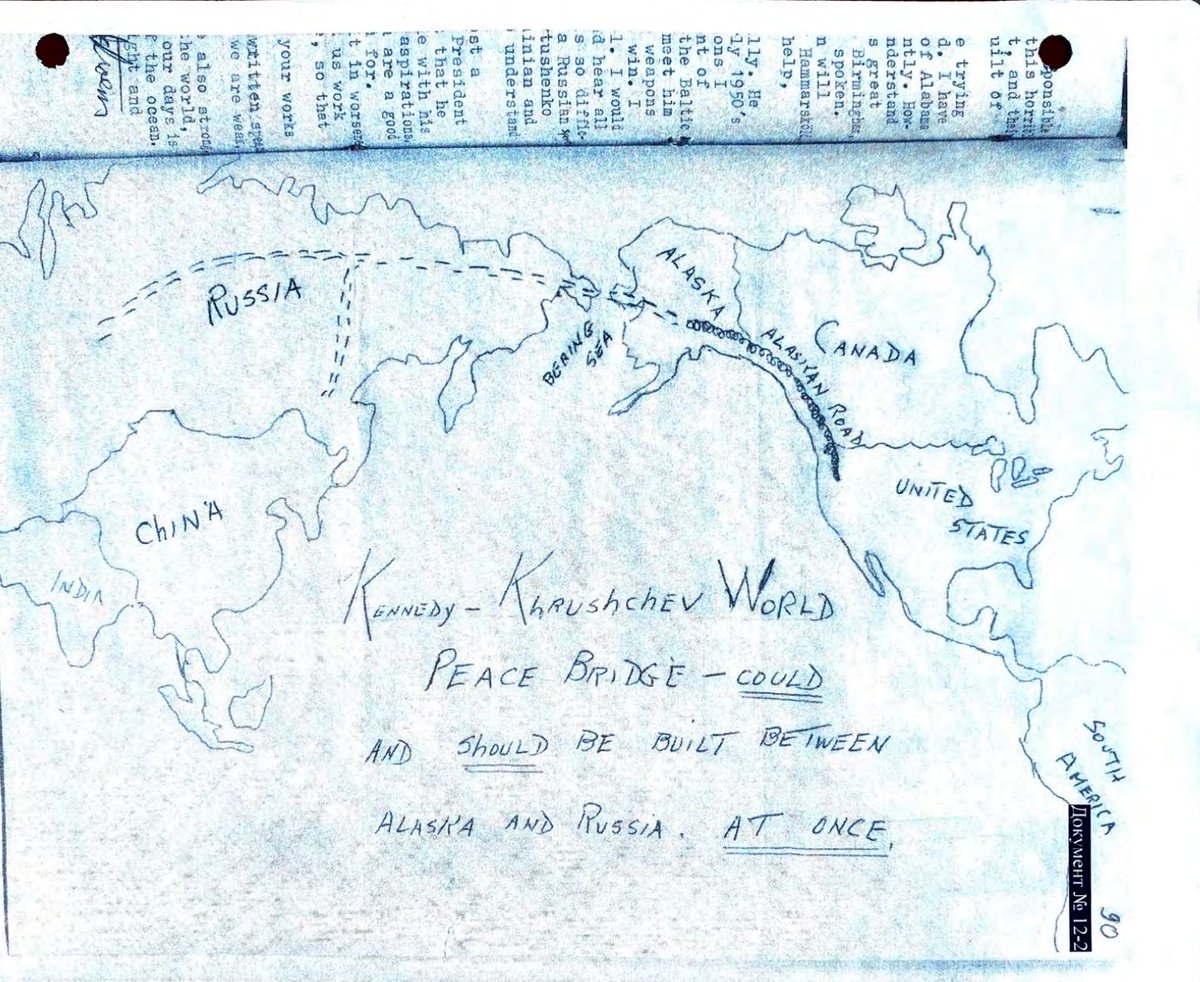 sponsible
this horrib
t, and thei
uilt of
e trying
d. I have
of Alabama
ntly. How-
nderstand
s great
Birmingham
spoken.
n will
Hammarskol
help,
lly. He
ly 1950's
ons I
nt of
the Baltic
meet him
weapons
win. I
l. I would
d hear all
s so diffic
a Russian
tushenko
inian and
understand
st a
President
that he
e with his
aspirations
are a good
for.
t in worsen
us work
, so that
your works
written
we are weak
also strong
he world,
our days is
f the ocean.
ght and
RUSSIA
ALASKA
BERING SEA
ALASKAN ROAD
CANADA
UNITED
STATES
CHINA
INDIA
KENNEDY – KHRUSHCHEV WORLD
PEACE BRIDGE – COULD
AND SHOULD BE BUILT BETWEEN
ALASKA AND RUSSIA. AT ONCE.
SOUTH
AMERICA
Документ № 12-2
90